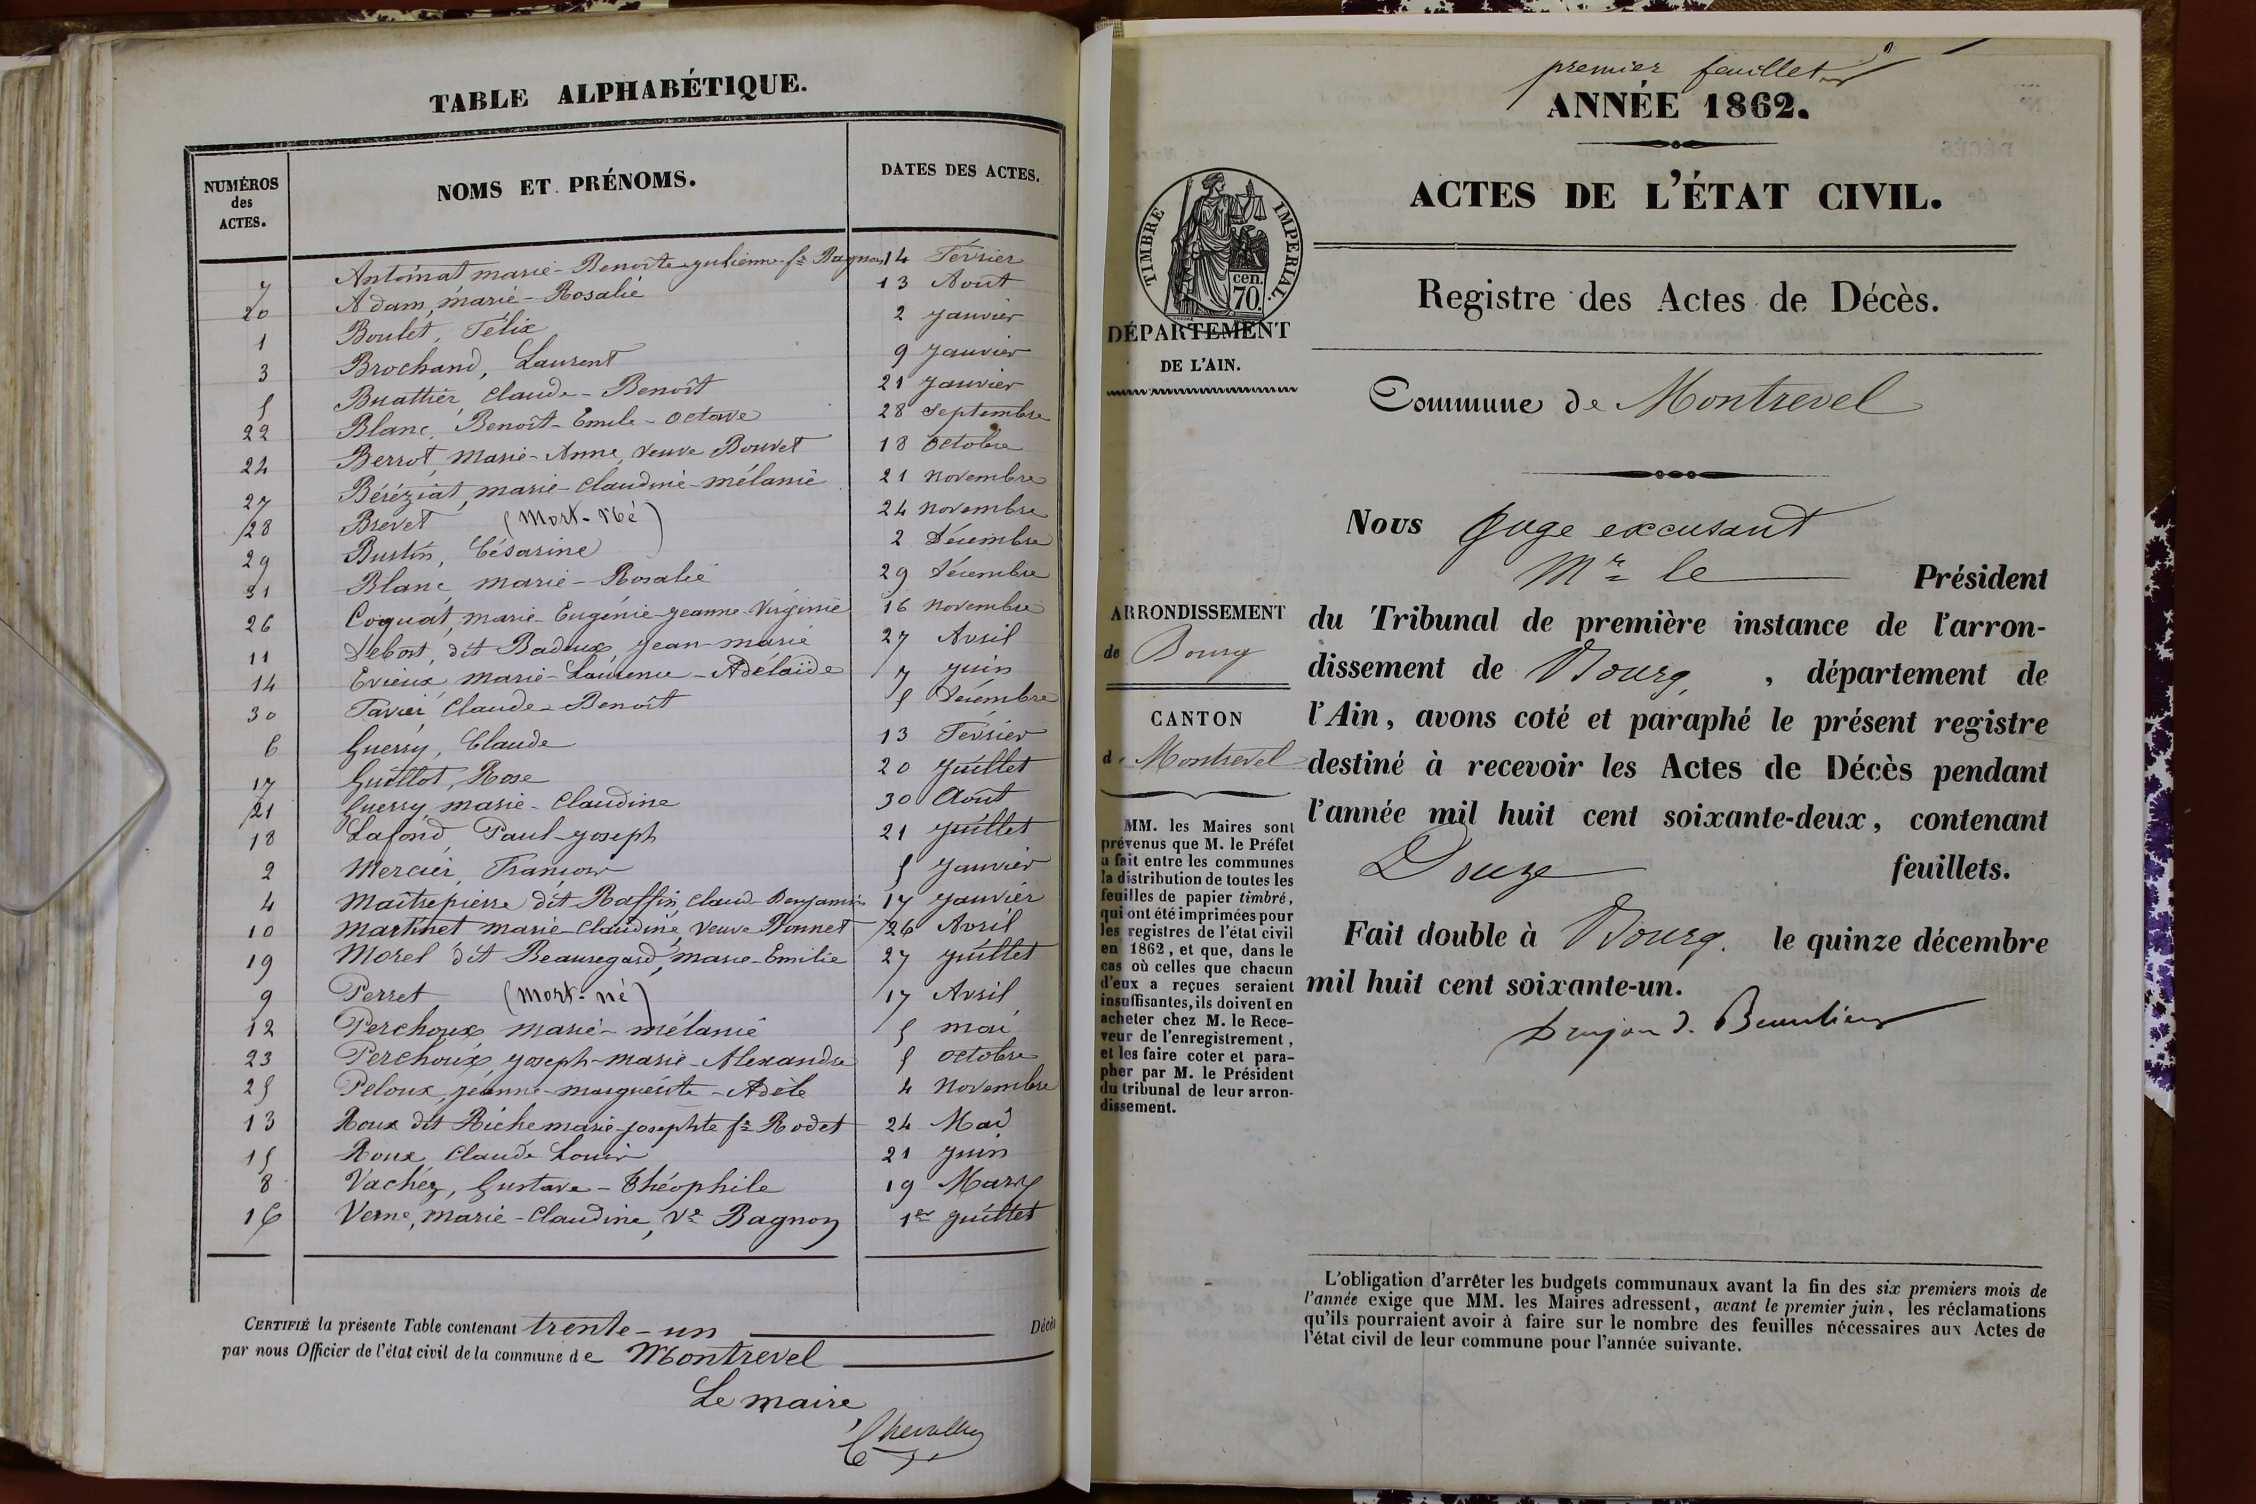 TABLE ALPHABÉTIQUE.
NUMÉROS des ACTES.
NOMS ET PRÉNOMS.
DATES DES ACTES.
7 Antoinat marie-Benoîte-Julienne fe Bagnon 14 Février
20 Adam, marie-Rosalie 13 Aout
1 Boulet, Félix 2 Janvier
3 Brochand, Laurent 9 Janvier
5 Buathier, Claude-Benoît 21 Janvier
22 Blanc, Benoît-Emile-Octave 28 Septembre
24 Berrot, Marie-Anne, veuve Bouvet 18 Octobre
27 Béréziat, marie-Claudine-mélanie 21 Novembre
28 Brevet (Mort-Né) 24 Novembre
29 Burtin, Césarine 2 Décembre
31 Blanc, Marie-Rosalie 29 Décembre
26 Coquat, Marie-Eugénie-Jeanne-Virginie 16 Novembre
11 Debost, dit Badoux, Jean-marie 27 Avril
14 Evieux, marie-Laurence-Adélaïde 7 Juin
30 Favier Claude-Benoît 5 Décembre
6 Guerry, Claude 13 Février
17 Guillot, Rose 20 Juillet
21 Guerry, marie-Claudine 30 Août
18 Lafond, Paul-Joseph 21 Juillet
2 Mercier, François 5 Janvier
4 Maitrepierre dit Raffin, Claude-Benjamin 17 Janvier
10 Martinet marie-Claudine, veuve Bonnet 26 Avril
19 Morel dit Beauregard, Marie-Emilie 27 Juillet
9 Perret (Mort-né) 17 Avril
12 Perchoux Marie-mélanie 5 mai
23 Perchoux, Joseph-marie-Alexandre 5 Octobre
25 Peloux, Jeanne-marguerite-Adèle 4 Novembre
13 Roux dit Riche marie-josephte fe Rodet 24 Mai
15 Roux, Claude Louis 21 Juin
8 Vachéz, Gustave-Théophile 19 Mars
16 Verne, marie-Claudine, Ve Bagnon 1er Juillet
CERTIFIÉ la présente Table contenant trente-un Décès
par nous Officier de l'état civil de la commune de Montrevel
Le maire
premier feuillet
ANNÉE 1862.
ACTES DE L'ÉTAT CIVIL.
TIMBRE IMPERIAL.
cen.
70.
Registre des Actes de Décès.
DÉPARTEMENT
DE L'AIN.
Commune de Montrevel
Nous Juge excusant
Mr le Président
du Tribunal de première instance de l'arron-
dissement de Bourg, département de
l'Ain, avons coté et paraphé le présent registre
destiné à recevoir les Actes de Décès pendant
l'année mil huit cent soixante-deux, contenant
Douze feuillets.
Fait double à Bourg. le quinze décembre
mil huit cent soixante-un.
ARRONDISSEMENT
de Bourg
CANTON
de Montrevel
MM. les Maires sont
prévenus que M. le Préfet
a fait entre les communes
la distribution de toutes les
feuilles de papier timbré,
qui ont été imprimées pour
les registres de l'état civil
en 1862, et que, dans le
cas où celles que chacun
d'eux a reçues seraient
insuffisantes, ils doivent en
acheter chez M. le Rece-
veur de l'enregistrement,
et les faire coter et para-
pher par M. le Président
du tribunal de leur arron-
dissement.
L'obligation d'arrêter les budgets communaux avant la fin des six premiers mois de
l'année exige que MM. les Maires adressent, avant le premier juin, les réclamations
qu'ils pourraient avoir à faire sur le nombre des feuilles nécessaires aux Actes de
l'état civil de leur commune pour l'année suivante.